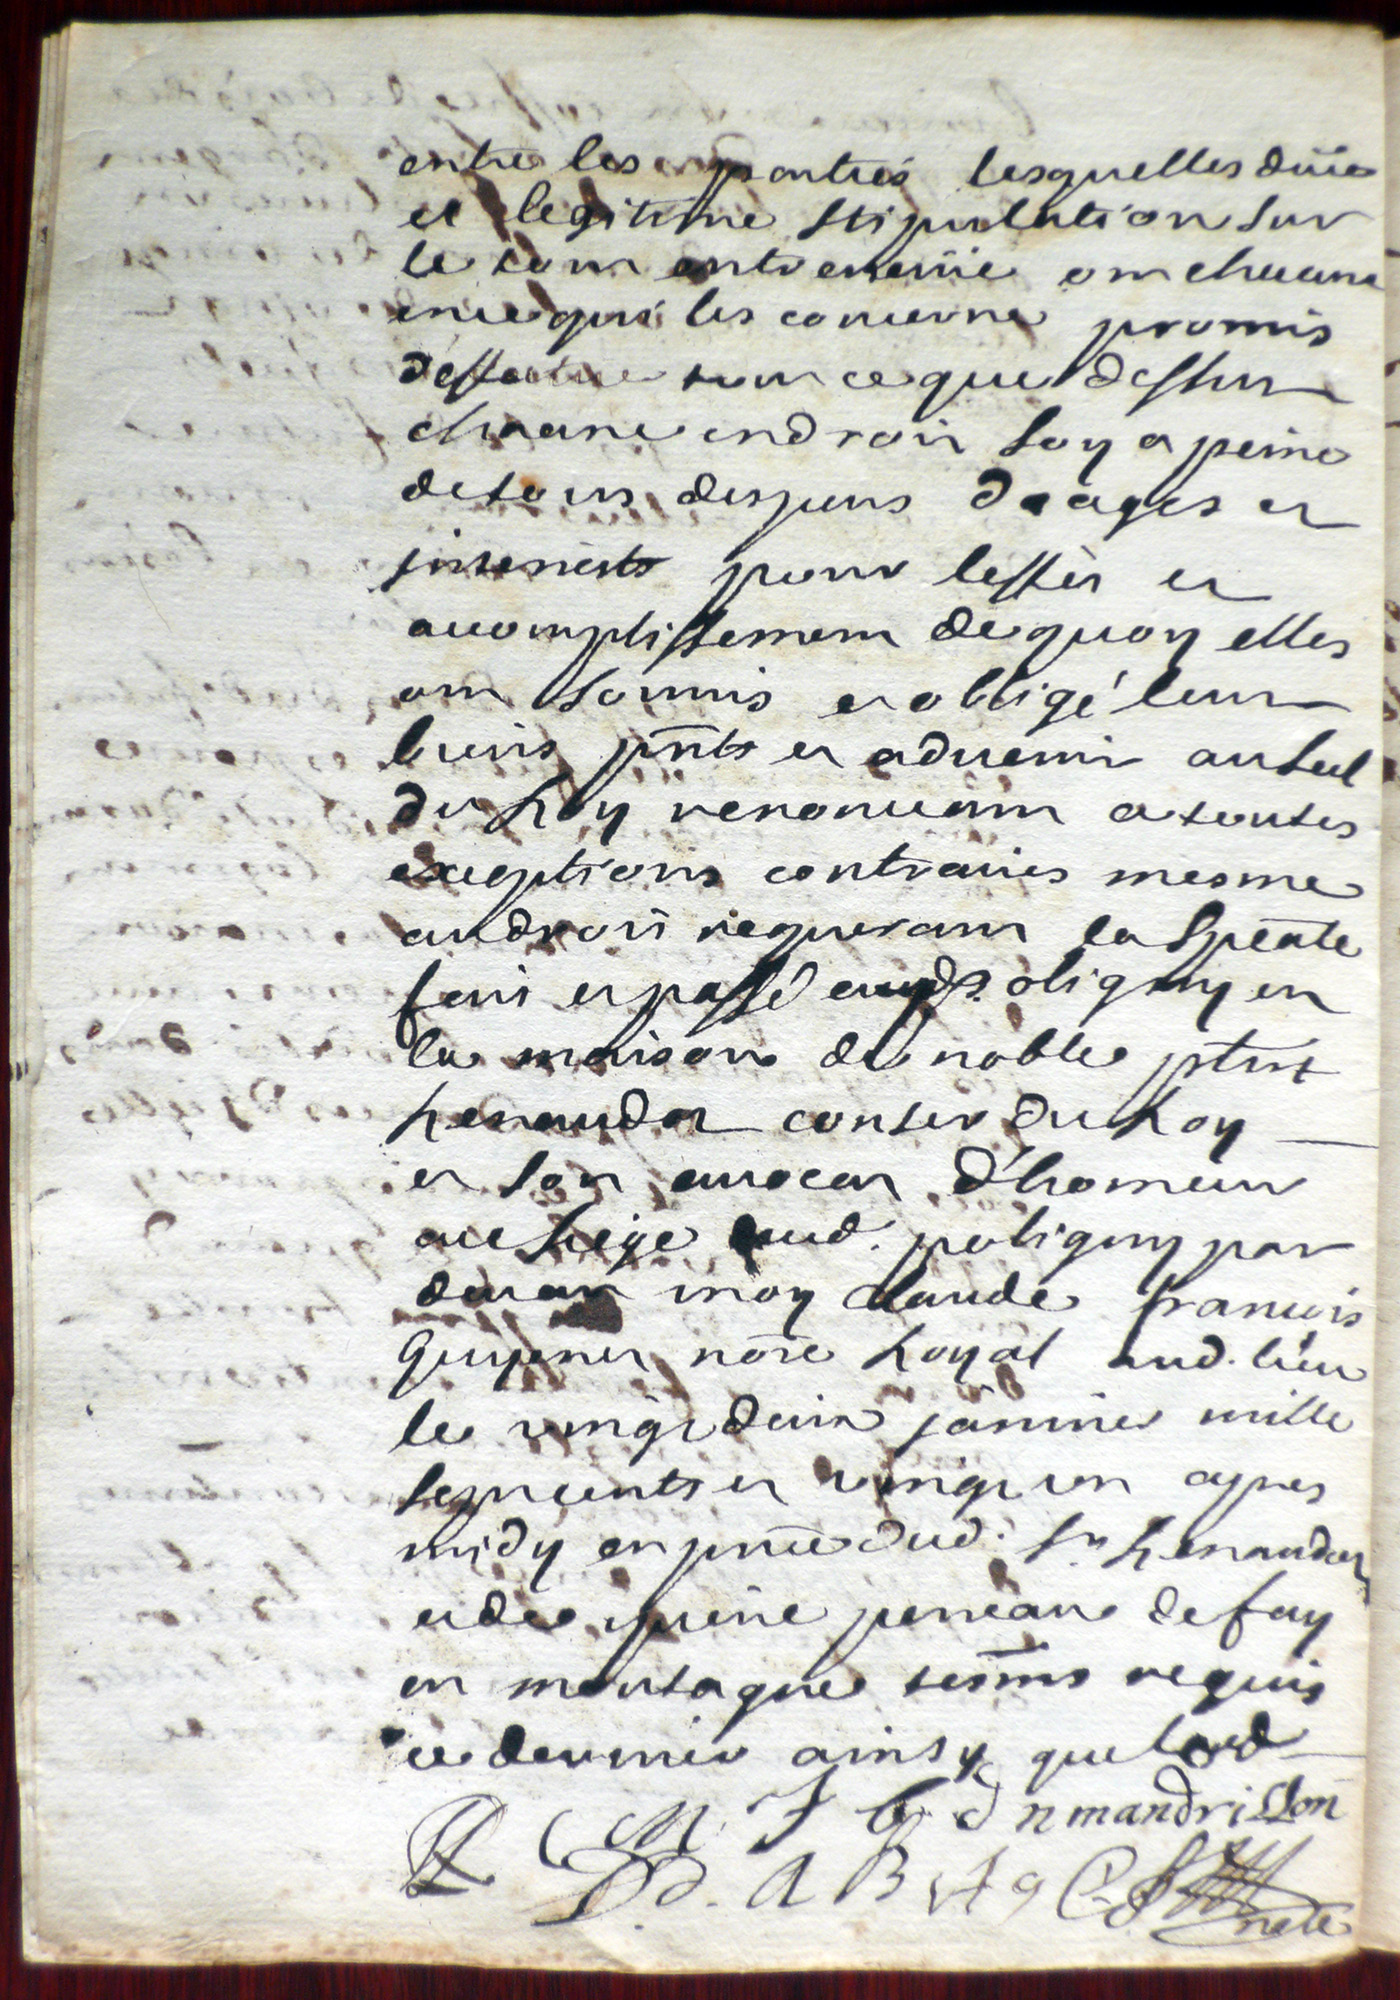 entre les parties lesquelles düe
et legitime stipulation sur
le tout entrevenüe ont chacune
en ce qui les concerne promis
d'effectuer tout ce que dessus
chacune endroit soy a peine
de tous despens d'ages et
interests pour l'effet et
accomplissement de quoy elles
ont soumis et obligé leur
biens pñts et advenir au scel
du Roy renonceant a toutes
exceptions contraires mesme
au droit requerant la speãle
fait et passé aud. poligny en
la maison de noble
Renaudot conser du Roy
et son avocat d'honneur
au siege dud. poligny par
devant moy Claude francois
nõre Royal aud. lieu
le vingt deux janvier mille
sept cents et vingt un apres
midy en pñce dud. Sr Renaudot
et de perreau de fay
en montagne tesms requis
ce dernier ainsy que lesd
C M J G J N mandrillon
D. A B A G C.
note